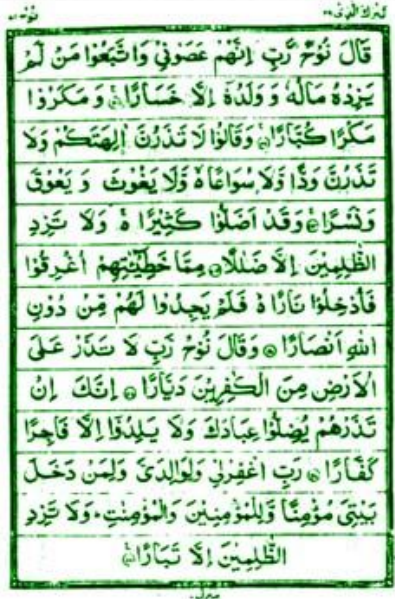 تبٰرك الذی ٢٩ نوح ٧١
قَالَ نُوْحٌ رَّبِّ اِنَّهُمْ عَصَوْنِیْ وَاتَّبَعُوْا مَنْ لَّمْ
یَزِدْهُ مَالُهٗ وَ وَلَدُهٗۤ اِلَّا خَسَارًا وَ مَكَرُوْا
مَكْرًا كُبَّارًا وَقَالُوْا لَا تَذَرُنَّ اٰلِهَتَكُمْ وَلَا
تَذَرُنَّ وَدًّا وَّلَا سُوَاعًا ۙ وَّلَا یَغُوْثَ وَ یَعُوْقَ
وَنَسْرًا وَقَدْ اَضَلُّوْا كَثِیْرًا ۚ وَلَا تَزِدِ
الظّٰلِمِیْنَ اِلَّا ضَلٰلًا مِمَّا خَطِیْٓـٰٔتِهِمْ اُغْرِقُوْا
فَاُدْخِلُوْا نَارًا ۙ فَلَمْ یَجِدُوْا لَهُمْ مِّنْ دُوْنِ
اللّٰهِ اَنْصَارًا وَقَالَ نُوْحٌ رَّبِّ لَا تَذَرْ عَلَی
الْاَرْضِ مِنَ الْكٰفِرِیْنَ دَیَّارًا اِنَّكَ اِنْ
تَذَرْهُمْ یُضِلُّوْا عِبَادَكَ وَلَا یَلِدُوْۤا اِلَّا فَاجِرًا
كَفَّارًا رَبِّ اغْفِرْلِیْ وَلِوَالِدَیَّ وَلِمَنْ دَخَلَ
بَیْتِیَ مُؤْمِنًا وَّلِلْمُؤْمِنِیْنَ وَالْمُؤْمِنٰتِ ؕ وَلَا تَزِدِ
الظّٰلِمِیْنَ اِلَّا تَبَارًا